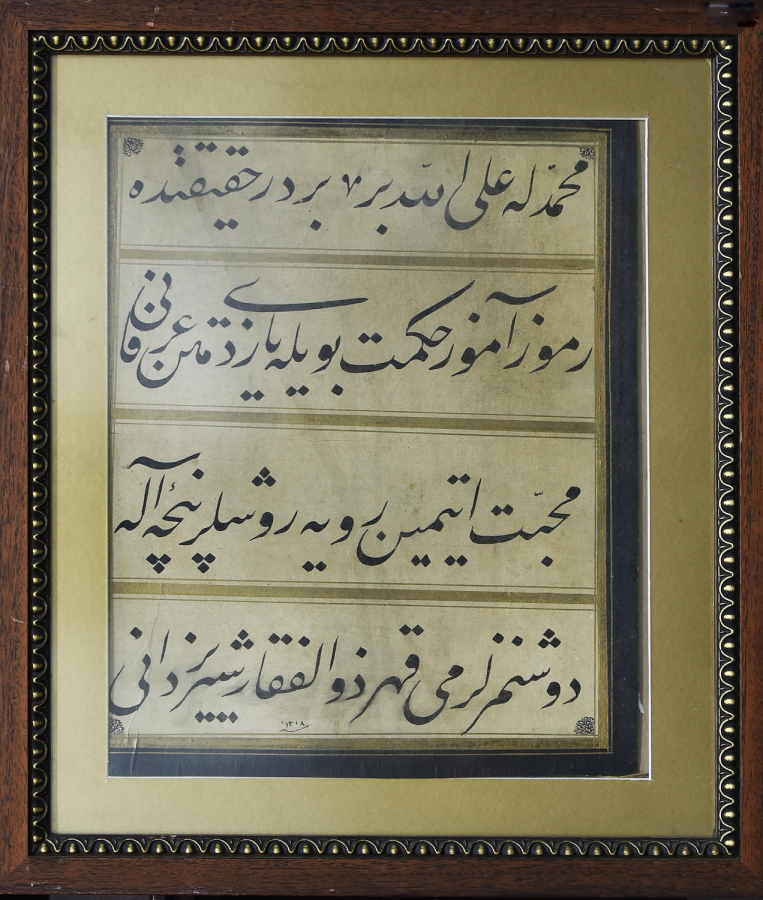 محمّدله علی بر بر در حقیقتده
رموز آموز حکمت بویله یازدی متن عرفانی
محبّت ایتمین روبه روشلر پنجهٔ آله
دوشنمزلرمی قهر ذوالفقار شیر یزدانی
سنه ١٣١٨